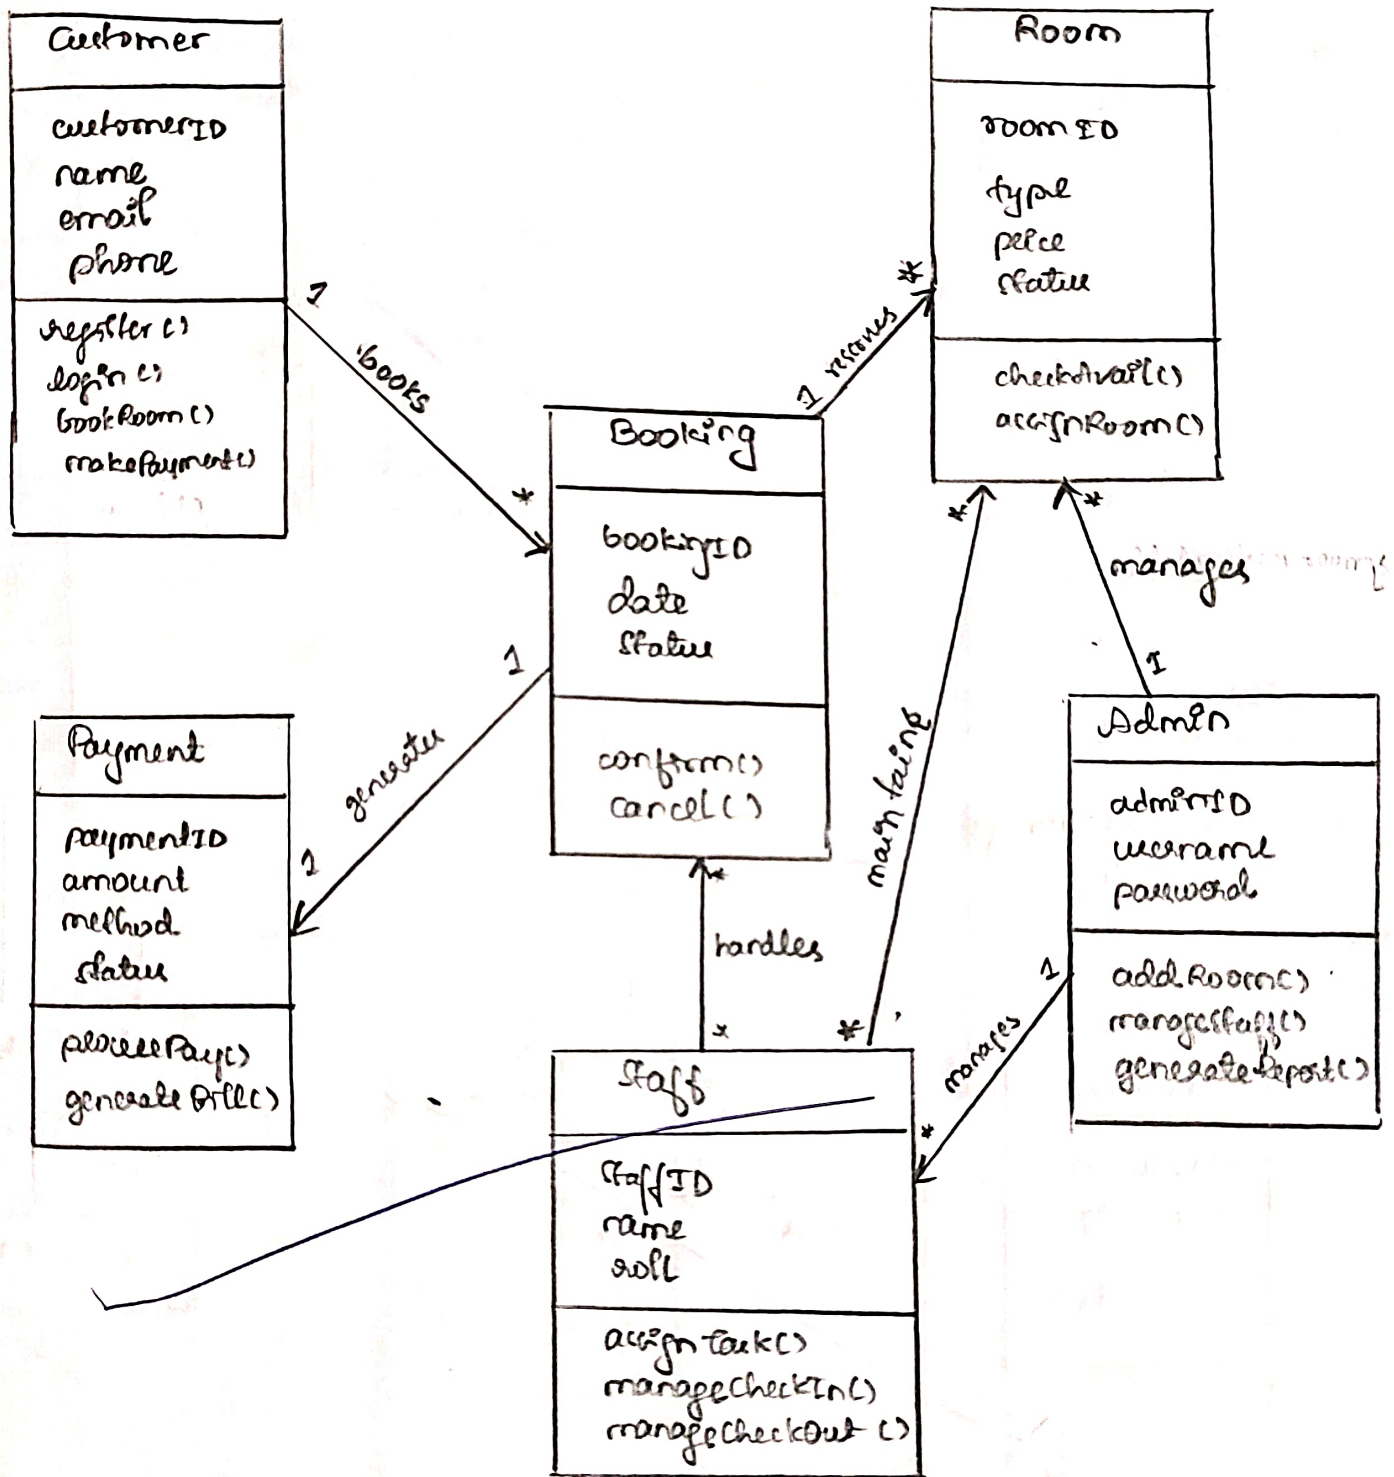 Customer
customerID
name
email
phone
register()
login()
bookRoom()
makePayment()
1
books
*
Room
roomID
type
price
status
checkAvail()
assignRoom()
*
reserves
1
Booking
bookingID
date
status
confirm()
cancel()
1
generates
1
Payment
paymentID
amount
method
status
processPay()
generateBill()
*
handles
*
*
maintains
*
*
manages
1
Admin
adminID
username
password
addRoom()
manageStaff()
generateReport()
1
manages
*
Staff
staffID
name
roll
assignTask()
manageCheckIn()
manageCheckOut()